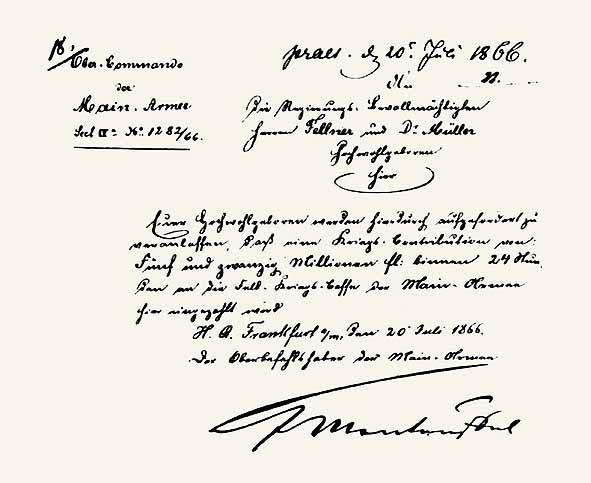 praes. d. 20t Juli 1866.
Ober-Commando
der
Main-Armee
Sect IIa No 1282/66.
An
die Regierungs-Bevollmächtigten
Herren Fellner und Dr Müller
Hochwohlgeboren
hier
Euer Hochwohlgeboren werden hierdurch aufgefordert zu
veranlassen, daß eine Kriegs-Contribution von
Fünf und zwanzig Millionen fl: binnen 24 Stun
den an die Feld-Kriegs-Casse der Main-Armee
hier eingezahlt wird
H. Q. Frankfurt a/m, den 20 Juli 1866.
Der Oberbefehlshaber der Main-Armee
Manteuffel